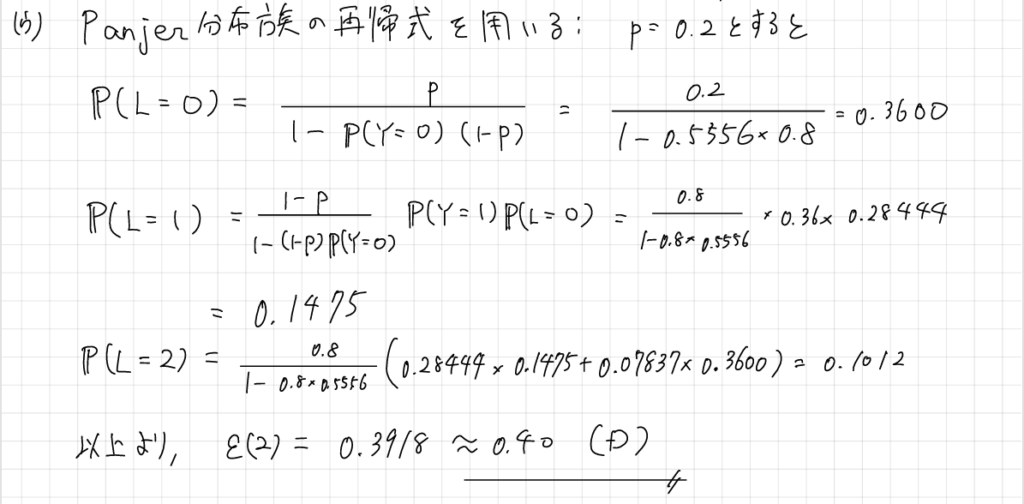 (5) Panjer分布族の再帰式を用いる: p = 0.2とすると
ℙ(L = 0) = p / (1 - ℙ(Y=0)(1-p)) = 0.2 / (1 - 0.5556 × 0.8) = 0.3600
ℙ(L = 1) = (1-p) / (1-(1-p)ℙ(Y=0)) ℙ(Y=1)ℙ(L=0) = 0.8 / (1-0.8×0.5556) × 0.36 × 0.28444
= 0.1475
ℙ(L = 2) = 0.8 / (1 - 0.8×0.5556) (0.28444 × 0.1475 + 0.07837 × 0.3600) = 0.1012
以上より, ε(2) = 0.3918 ≈ 0.40 (D)